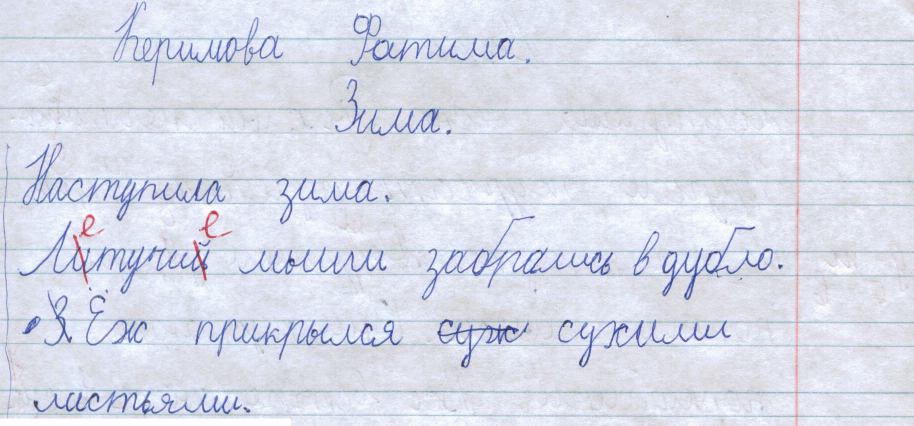 Керимова Фатима.
Зима.
Наступила зима.
Литучий мыши забрались в дубло.
Ёж прикрылся суж сухими
листьями.